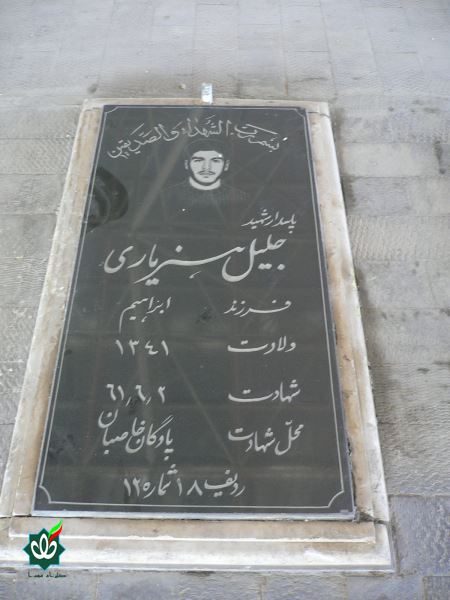 بسم رب الشهداء و الصدیقین
پاسدار شهید
جلیل یاری
فرزند ابراهیم
ولادت ۱۳۴۱
شهادت ۶۱٫۶٫۲
محل شهادت پادگان
ردیف ۱۸ شماره ۱۲